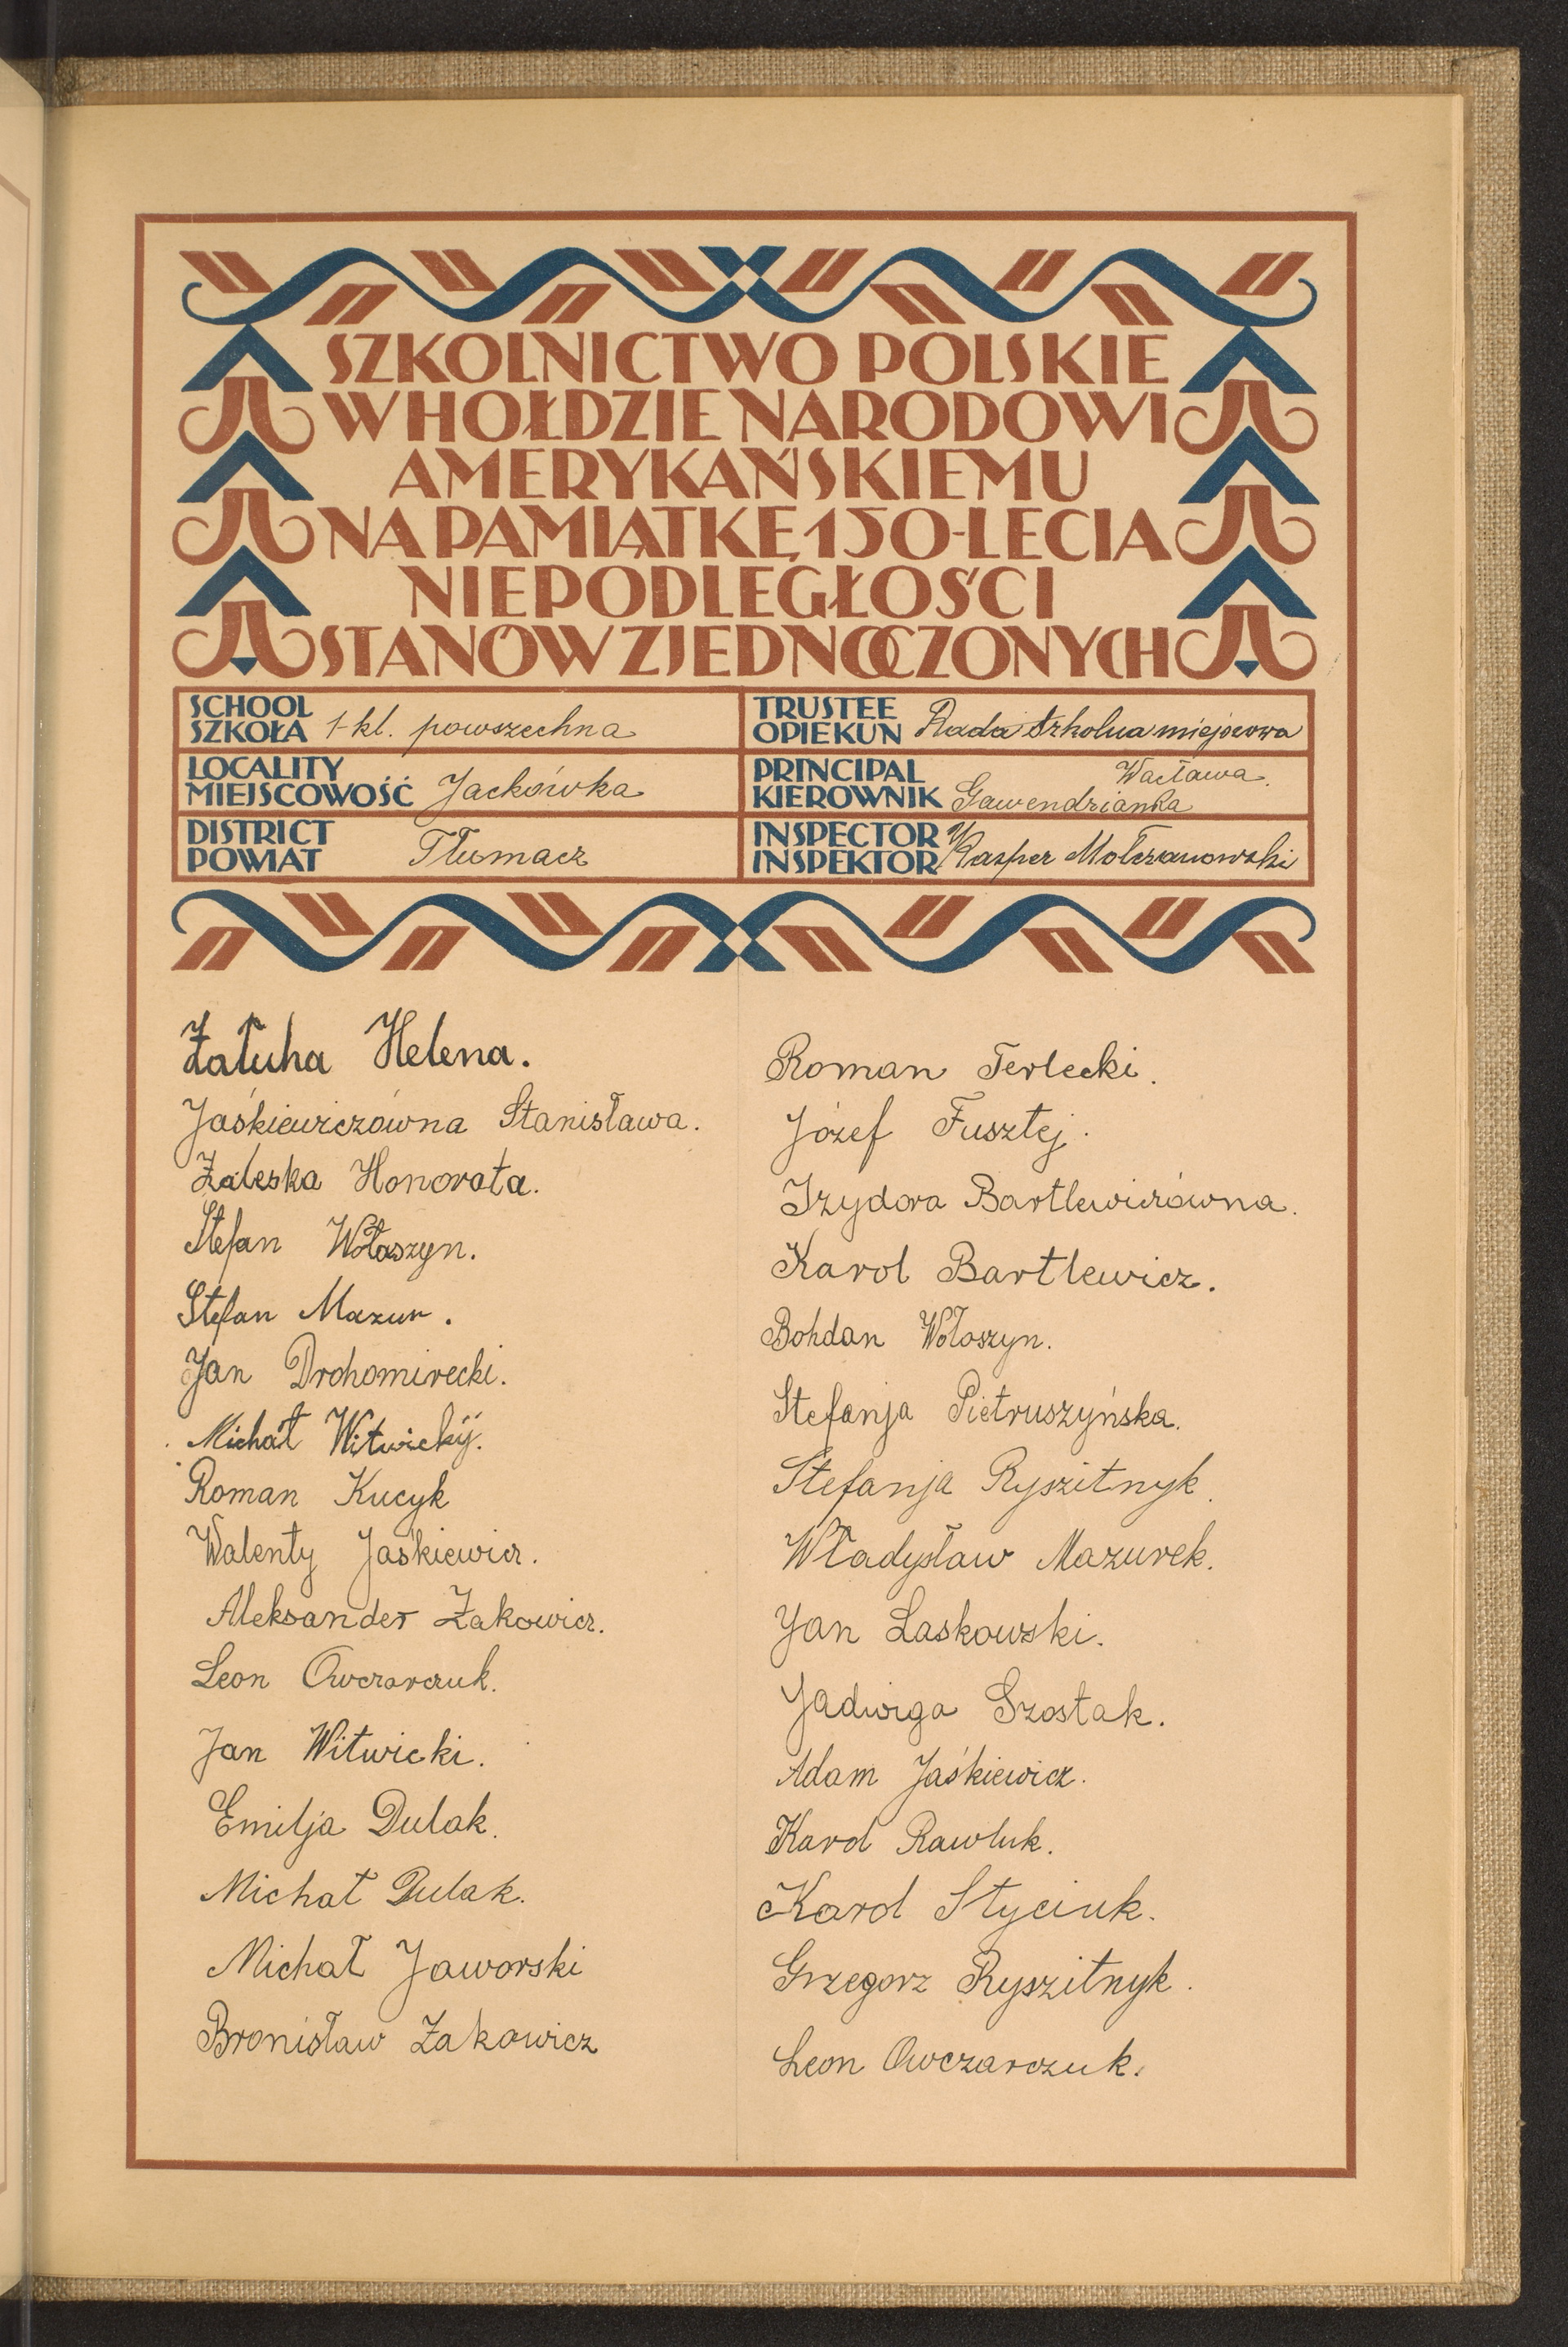 SZKOLNICTWO POLSKIE
W HOŁDZIE NARODOWI
AMERYKAŃSKIEMU
NA PAMIĄTKĘ 150-LECIA
NIEPODLEGŁOŚCI
STANÓW ZJEDNOCZONYCH
SCHOOL
SZKOŁA 1-kl. powszechna
TRUSTEE
OPIEKUN Rada szkolna miejscowa
LOCALITY
MIEJSCOWOŚĆ Jackówka
PRINCIPAL Wacława
KIEROWNIK Gawendzianka
DISTRICT
POWIAT Tłumacz
INSPECTOR
INSPEKTOR Kasper Mołczanowski
Załuha Helena.
Jaśkiewiczówna Stanisława.
Zaleska Honorata.
Stefan Wołaszyn.
Stefan Mazur.
Jan Drohomirecki.
Michał Witwickij.
Roman Kucyk
Walenty Jaśkiewicz.
Aleksander Żakowicz.
Leon Owczarczuk.
Jan Witwicki.
Emilja Dulak.
Michał Dulak.
Michał Jaworski
Bronisław Żakowicz
Roman Terlecki.
Józef Fusztej.
Izydora Bartlewiczówna.
Karol Bartlewicz.
Bohdan Wołoszyn.
Stefanja Pietruszyńska.
Stefanja Ryszitnyk.
Władysław Mazurek.
Jan Laskowski.
Jadwiga Szostak.
Adam Jaśkiewicz.
Karol Rawluk.
Karol Styciuk.
Grzegorz Ryszitnyk.
Leon Owczarczuk.